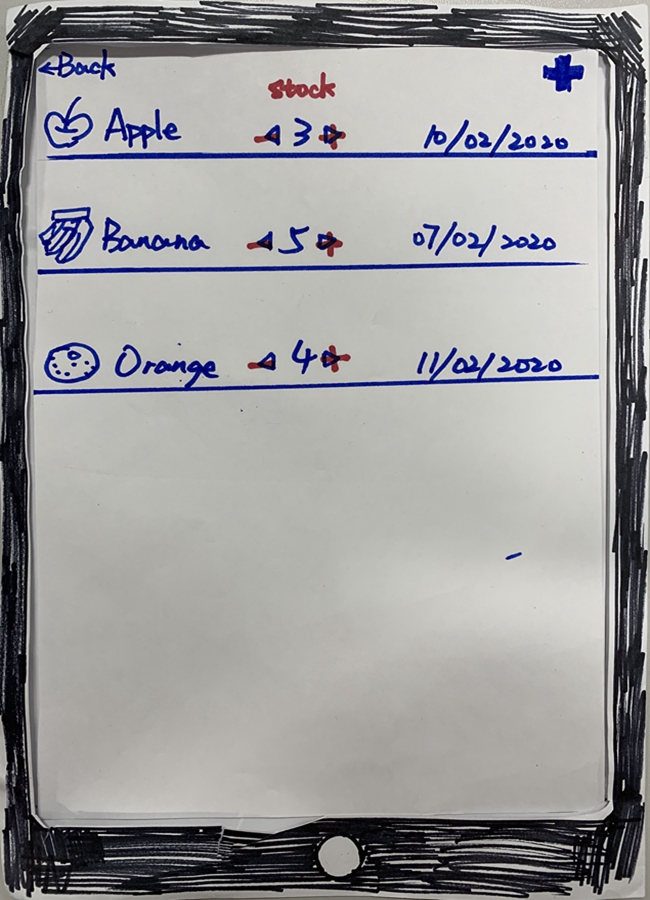 ←Back
stock
Apple 3 10/02/2020
Banana 5 07/02/2020
Orange 4 11/02/2020